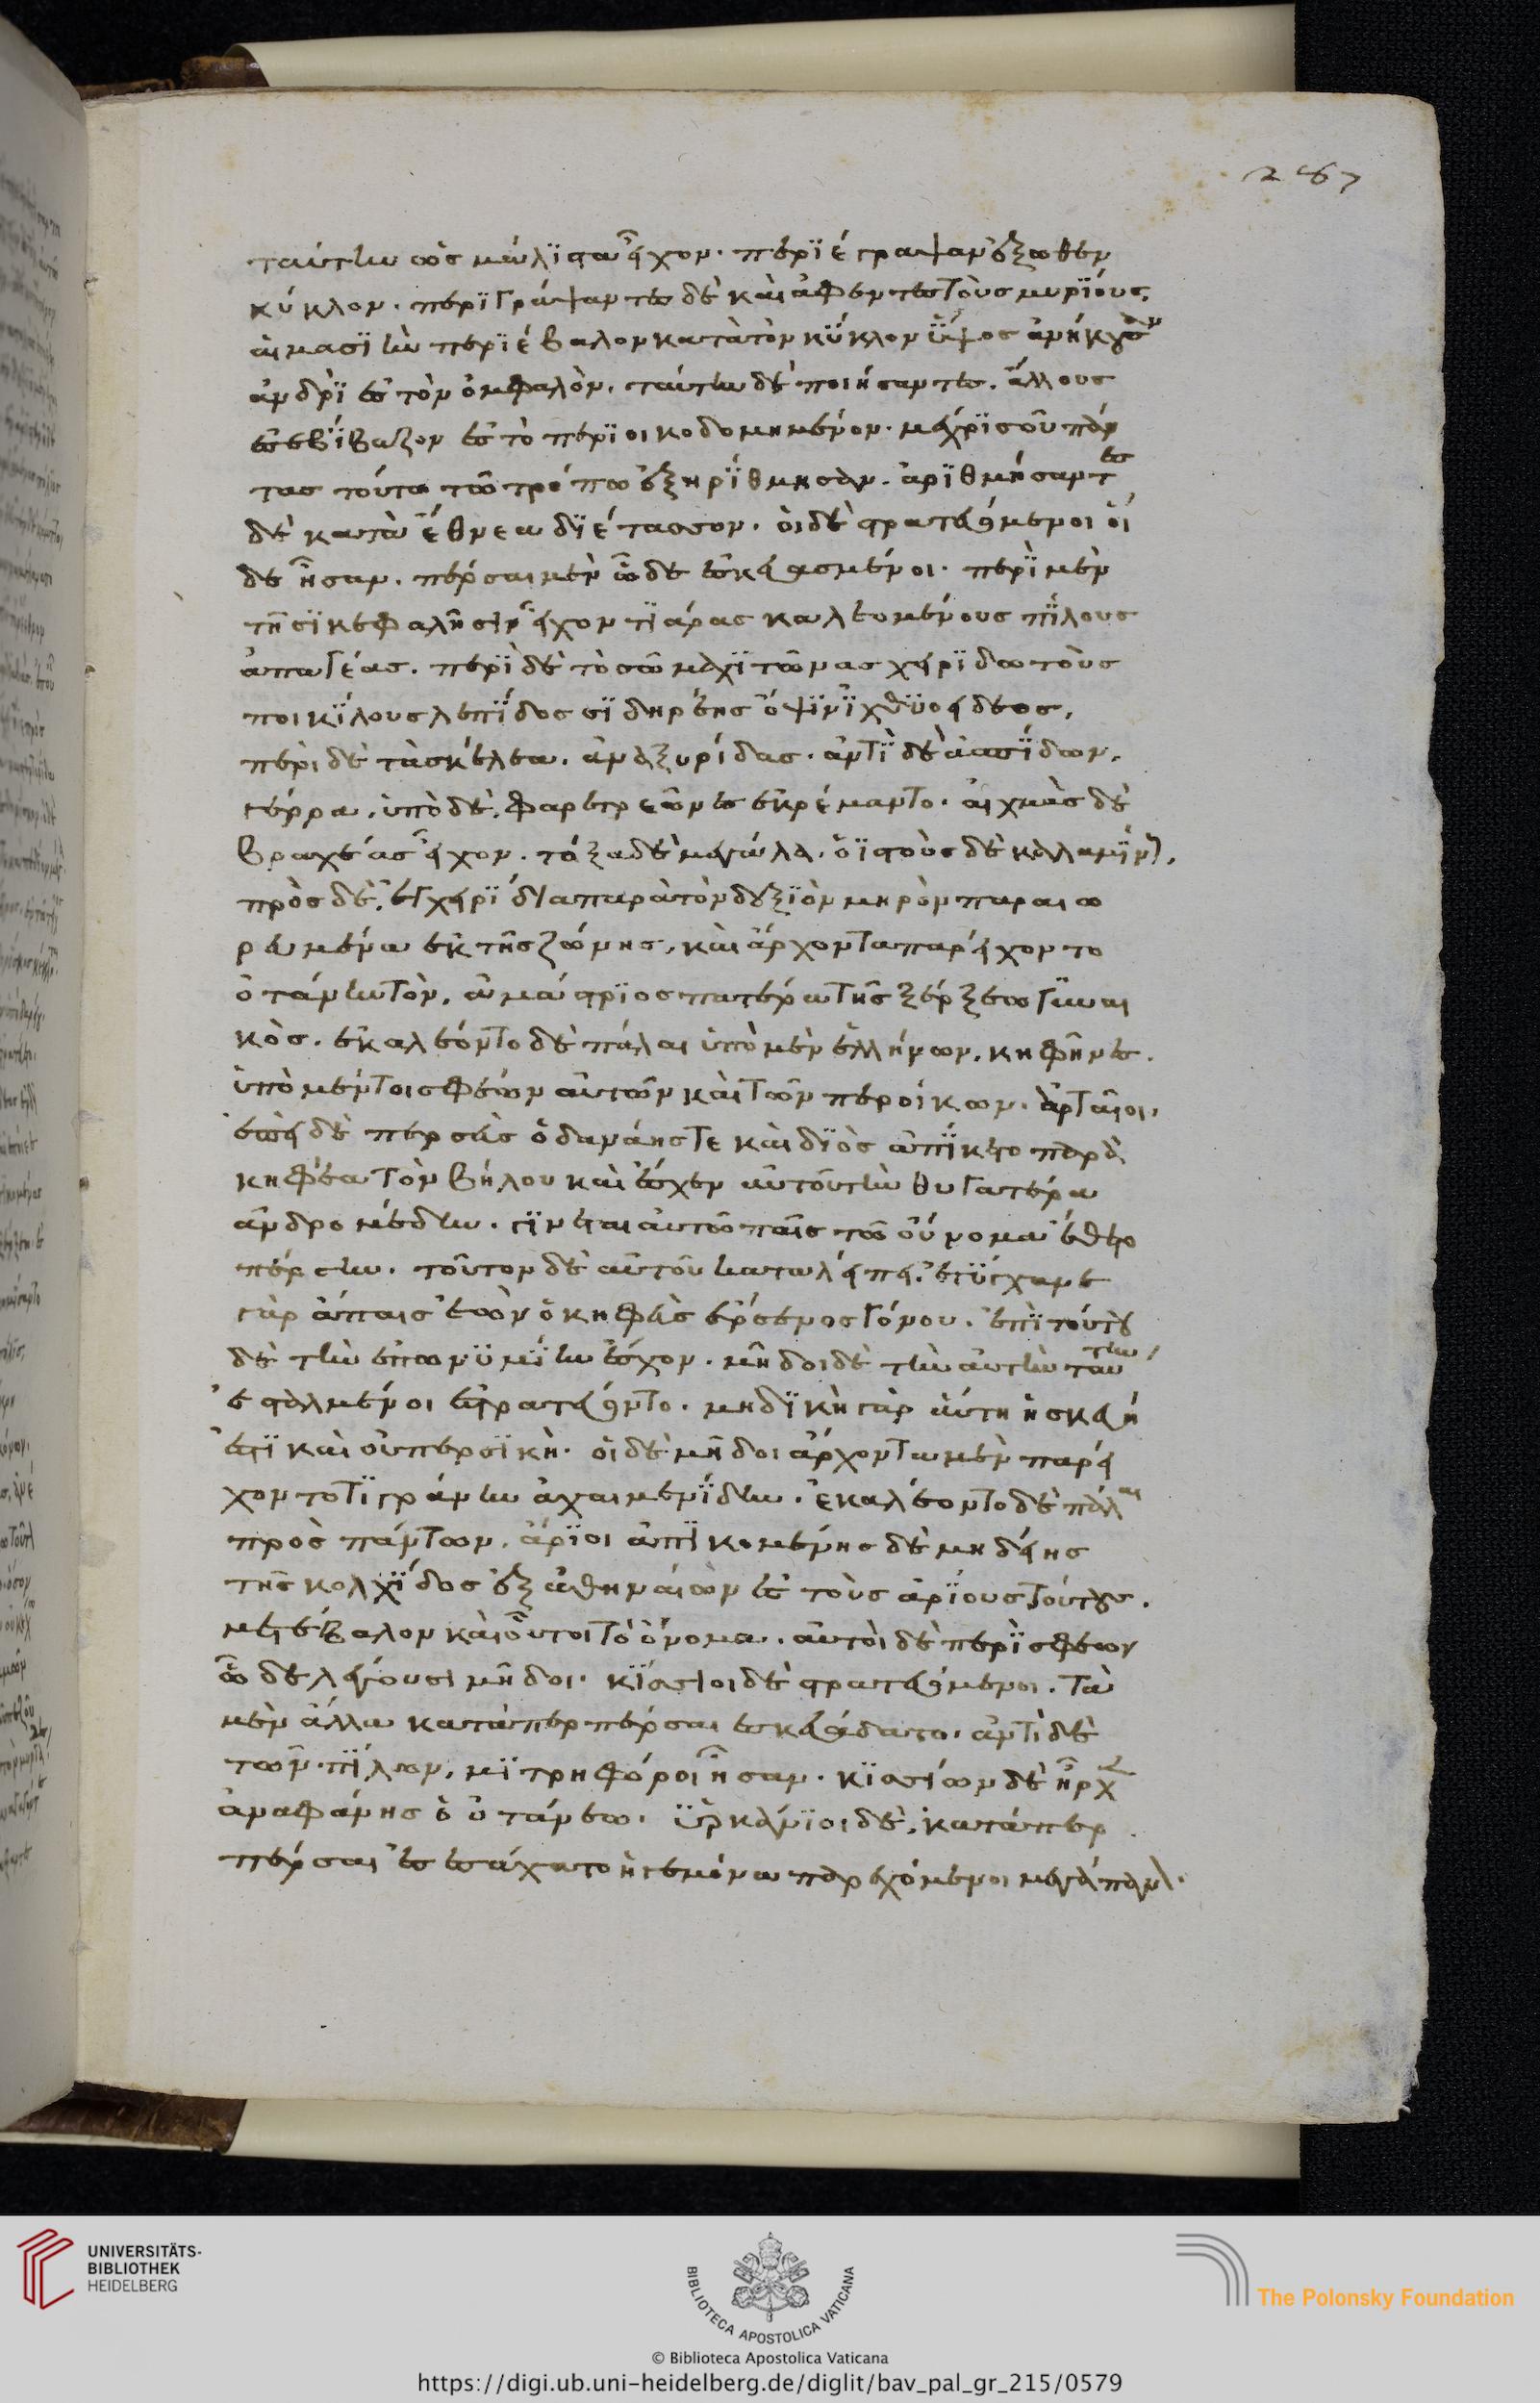 267
ταύτην ὡς μάλϊστα εἶχον. περϊέγραψαν ἔξωθεν
κύκλον. περϊγράψαντες δὲ καὶ ἀφέντες τοὺς μυρΐους,
αἱμασϊὴν περϊέβαλον κατὰ τὸν κΰκλον ὕψος ἀνήκουσαν
ἀνδρῒ ἐς τὸν ὀμφαλὸν. ταύτην δὲ ποιήσαντες. ἄλλους
ἐσεβΐβαζον ἐς τὸ περϊοικοδομημένον. μέχρϊς οὗ πάν
τας τούτω τῶ τρόπω ἐξηρΐθμησαν. ἀρϊθμήσαντες
δὲ κατὰ ἔθνεα δϊέτασσον. οἱ δὲ στρατευόμενοι οἵ
δε ἦσαν. πέρσαι μὲν ὧδε ἐσκευασμένοι. περῒ μὲν
τῆσϊ κεφαλῆσιν εἶχον τϊάρας καλεομένους πΐλους
ἀπαγέας. περῒ δὲ τὸ σῶμα χϊτῶνας χειρϊδωτοὺς
ποικΐλους λεπΐδος σϊδηρέης ὄψϊν ἰχθϋοειδέος,
περὶ δὲ τὰ σκέλεα. ἀναξυρίδας. ἀντῒ δὲ ἀσπΐδων,
γέρρα, ὑπὸ δὲ, φαρετρεῶνες ἐκρέμαντο. αἰχμὰς δὲ
βραχέας εἶχον. τόξα δὲ μεγάλα. ὀϊστοὺς δὲ καλαμΐνους,
πρὸς δὲ, ἐγχειρΐδια παρὰ τὸν δεξϊὸν μηρὸν παραιω
ρεύμενα ἐκ τῆς ζώνης, καὶ ἄρχοντα παρείχοντο
ὀτάνην τὸν, ἀμάστρϊος πατέρα τῆς ξέρξεω γυναι
κὸς. ἐκαλέοντο δὲ πάλαι ὑπὸ μὲν ἑλλήνων, κηφῆνες.
ὑπὸ μέντοι σφέων αὐτῶν καὶ τῶν περοίκων. ἀρταῖοι,
ἐπεὶ δὲ περσεὺς ὁ δανάης τε καὶ δϊὸς ἀπΐκετο παρὰ
κηφέα τὸν βήλου καὶ ἔσχεν αὐτοῦ τὴν θυγατέρα
ἀνδρομέδην. γϊνεται αὐτῶ παῖς τῶ οὔνομα ἔθετο
πέρσην. τοῦτον δὲ αὐτοῦ καταλείπει. ἐτΰγχανε
γὰρ ἄπαις ἐὼν ὁ κηφεὺς ἔρσενος γόνου. ἐπῒ τούτου
δὲ τὴν ἐπωνϋμΐην ἔσχον. μῆδοι δὲ τὴν αὐτὴν ταύτην
ἐσταλμένοι ἐστρατεύοντο. μηδϊκὴ γὰρ αὕτη ἡ σκευή
ἐστϊ καὶ οὐ περσϊκὴ. οἱ δὲ μῆδοι ἄρχοντα μὲν παρεί
χοντο τϊγράνην ἀχαιμενΐδην. ἐκαλέοντο δὲ πάλαι
πρὸς πάντων. ἄρϊοι ἀπϊκομένης δὲ μηδείης
τῆς κολχΐδος ἐξ ἀθηναίων ἐς τοὺς ἀρΐους τούτους.
μετέβαλον καὶ οὗτοι τὸ ὄνομα. αὐτοὶ δὲ περῒ σφέων
ὧδε λέγουσι μῆδοι. κΐσσιοι δὲ στρατευόμενοι. τὰ
μὲν ἄλλα κατάπερ πέρσαι ἐσκευάδατο. ἀντὶ δὲ
τῶν πΐλων, μϊτρηφόροι ἦσαν. κϊσσίων δὲ ἦρχε
ἀναφάνης ὁ ὀτάνεω. ὑρκάνϊοι δὲ, κατάπερ
πέρσαι ἐσεσάχατο ἡγεμόνα παρεχόμενοι μεγάπανον.
UNIVERSITÄTS-
BIBLIOTHEK
HEIDELBERG
BIBLIOTECA APOSTOLICA VATICANA
The Polonsky Foundation
© Biblioteca Apostolica Vaticana
https://digi.ub.uni-heidelberg.de/diglit/bav_pal_gr_215/0579